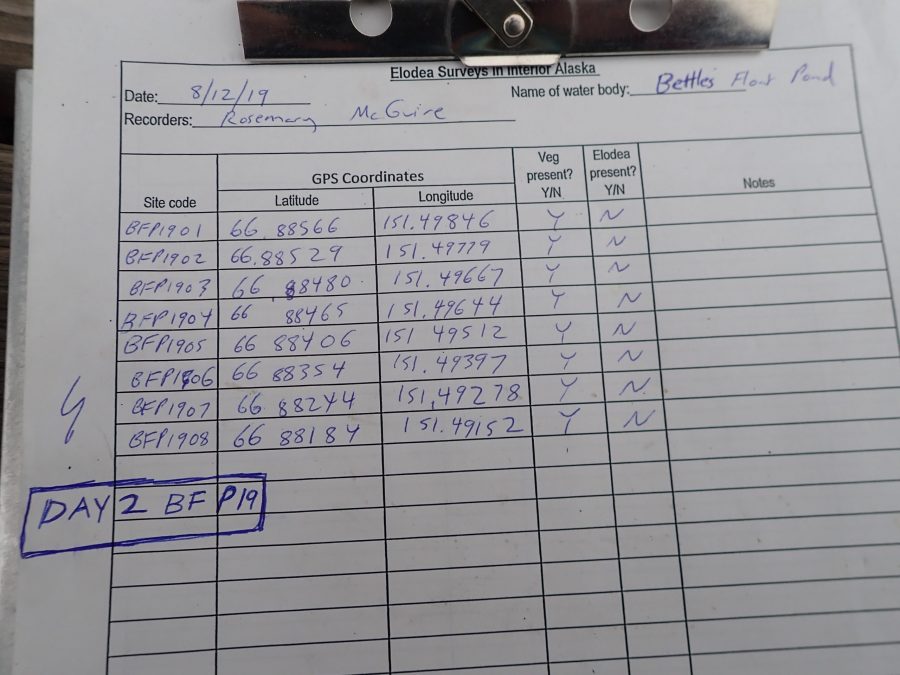 Elodea Surveys in Interior Alaska
Date: 8/12/19 Name of water body: Bettles Float Pond
Recorders: Rosemary McGuire
Site code GPS Coordinates Latitude Longitude Veg present? Y/N Elodea present? Y/N Notes
BFP1901 66 88566 151.49846 Y N
BFP1902 66.88529 151.49779 Y N
BFP1903 66 88480 151.49667 Y N
BFP1904 66 88465 151.49644 Y N
BFP1905 66 88406 151 49512 Y N
BFP1906 66 88354 151.49397 Y N
BFP1907 66 88244 151,49278 Y N
BFP1908 66 88184 151.49152 Y N
DAY 2 BFP19